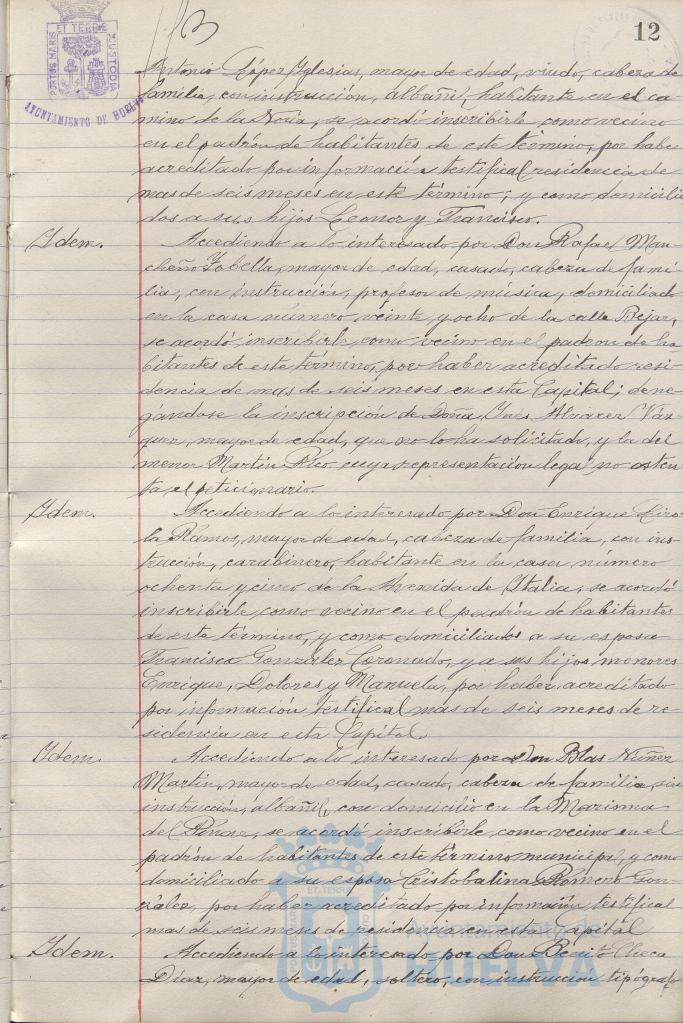 12
PORTUS MARIS ET TERRE CUSTODIA
AYUNTAMIENTO DE HUELVA
Antonio López Iglesias, mayor de edad, viudo, cabeza de
familia, con instrucción, albañil, habitante en el ca-
mino de la Noria, se acordó inscribirle como vecino
en el padrón de habitantes de este término, por haber
acreditado por información testifical residencia de
mas de seis meses en este término; y como domicilia-
dos a sus hijos Leonor y Francisco.
Idem. Accediendo a lo interesado por Don Rafael Man-
cheño Zabella, mayor de edad, casado, cabeza de fami-
lia, con instrucción, profesor de música, domiciliado
en la casa número veinte y ocho de la calle Bejar,
se acordó inscribirle como vecino en el padron de ha-
bitantes de este término, por haber acreditado resi-
dencia de mas de seis meses en esta Capital; dene-
gándose la inscripción de Doña Inés Alvarez Váz-
quez, mayor de edad, que no lo ha solicitado, y la del
menor Martín Rico, cuya representación legal no osten-
ta el peticionario.
Idem. Accediendo a lo interesado por Don Enrique
Ramos, mayor de edad, cabeza de familia, con ins-
trucción, carabinero, habitante en la casa número
ochenta y cinco de la Avenida de Italia, se acordó
inscribirle como vecino en el padrón de habitantes
de este término, y como domiciliados a su esposa
Francisca González Coronado, y a sus hijos menores
Enrique, Dolores y Manuela, por haber acreditado
por información testifical mas de seis meses de re-
sidencia en esta Capital.
Idem. Accediendo a lo interesado por Don Blas Núñez
Martin, mayor de edad, casado, cabeza de familia, sin
instrucción, albañil, con domicilio en la Marisma
del Pinar, se acordó inscribirle como vecino en el
padrón de habitantes de este término municipal, y como
domiciliado a su esposa Cristobalina Romero Gon-
zález, por haber acreditado por información testifical
mas de seis meses de residencia en esta Capital
Idem. Accediendo a lo interesado por Don Benito Checa
Díaz, mayor de edad, soltero, con instrucción, tipógrafo
Ayuntamiento de
HUELVA